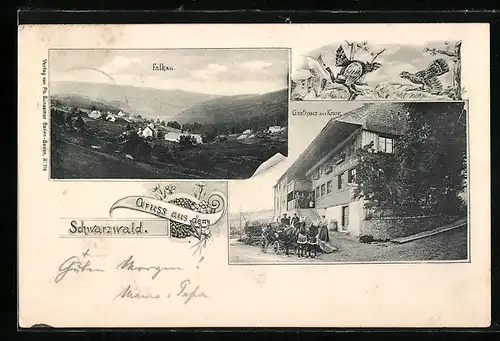 Verlag von Ph. Bussemer Baden-Baden.
Falkau.
Gasthaus zur Krone.
Gruss aus dem
Schwarzwald.
Guten Morgen!
Mama & Papa